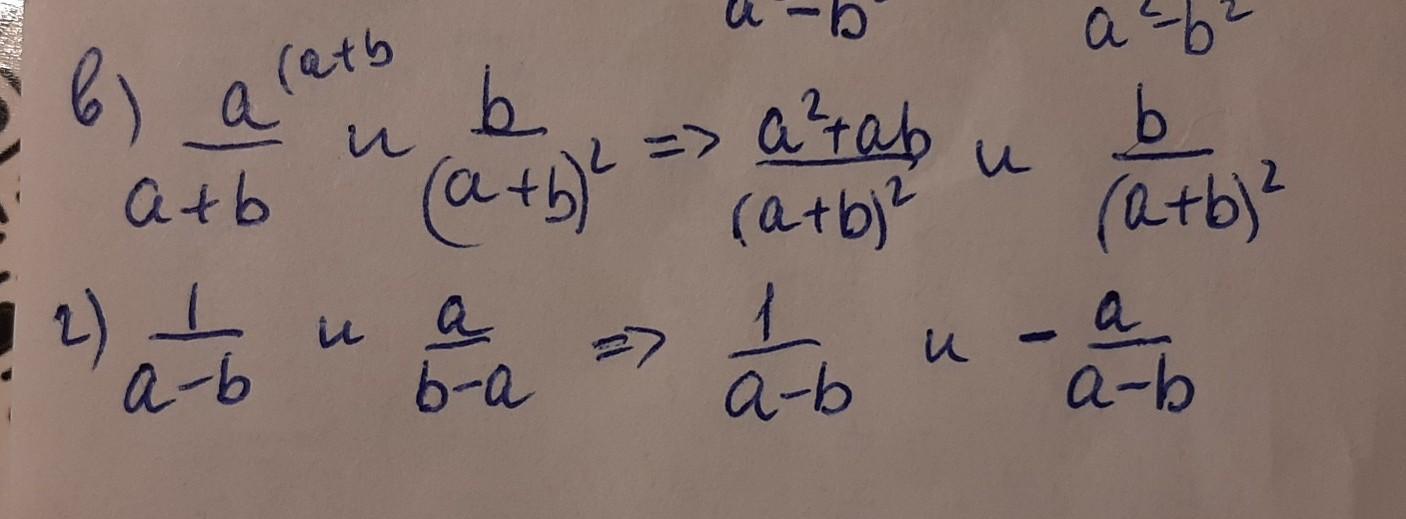 a² - b² a² - b²
в) a^(a+b / a+b и b/(a+b)² => a²+ab/(a+b)² и b/(a+b)²
г) 1/a-b и a/b-a => 1/a-b и - a/a-b